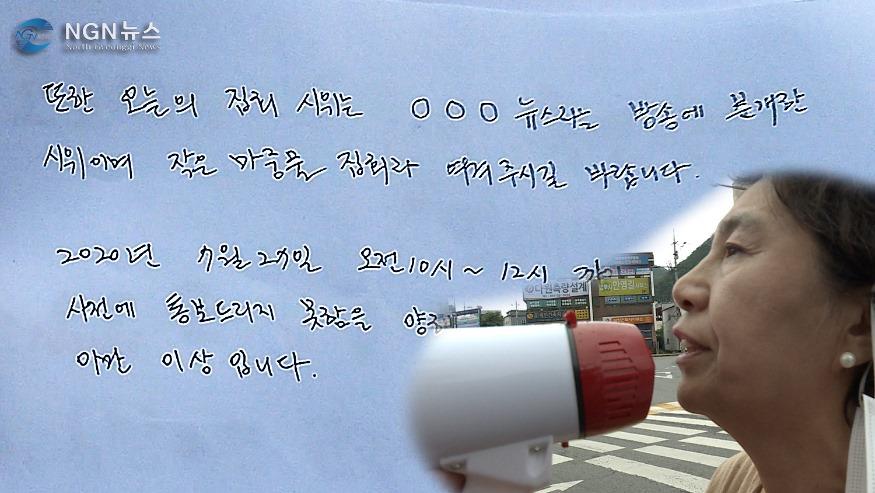 NGN뉴스
North Gyeonggi News
또한 오늘의 집회 시위는 ○○○ 뉴스라는 방송에 분개한
시위이며 작은 마중물 집회라 여겨주시길 바랍니다.
2020년 7월 27일 오전10시~12시 까
사전에 통보드리지 못함을 양
이만 이상 입니다.
다원측량설계
안영길